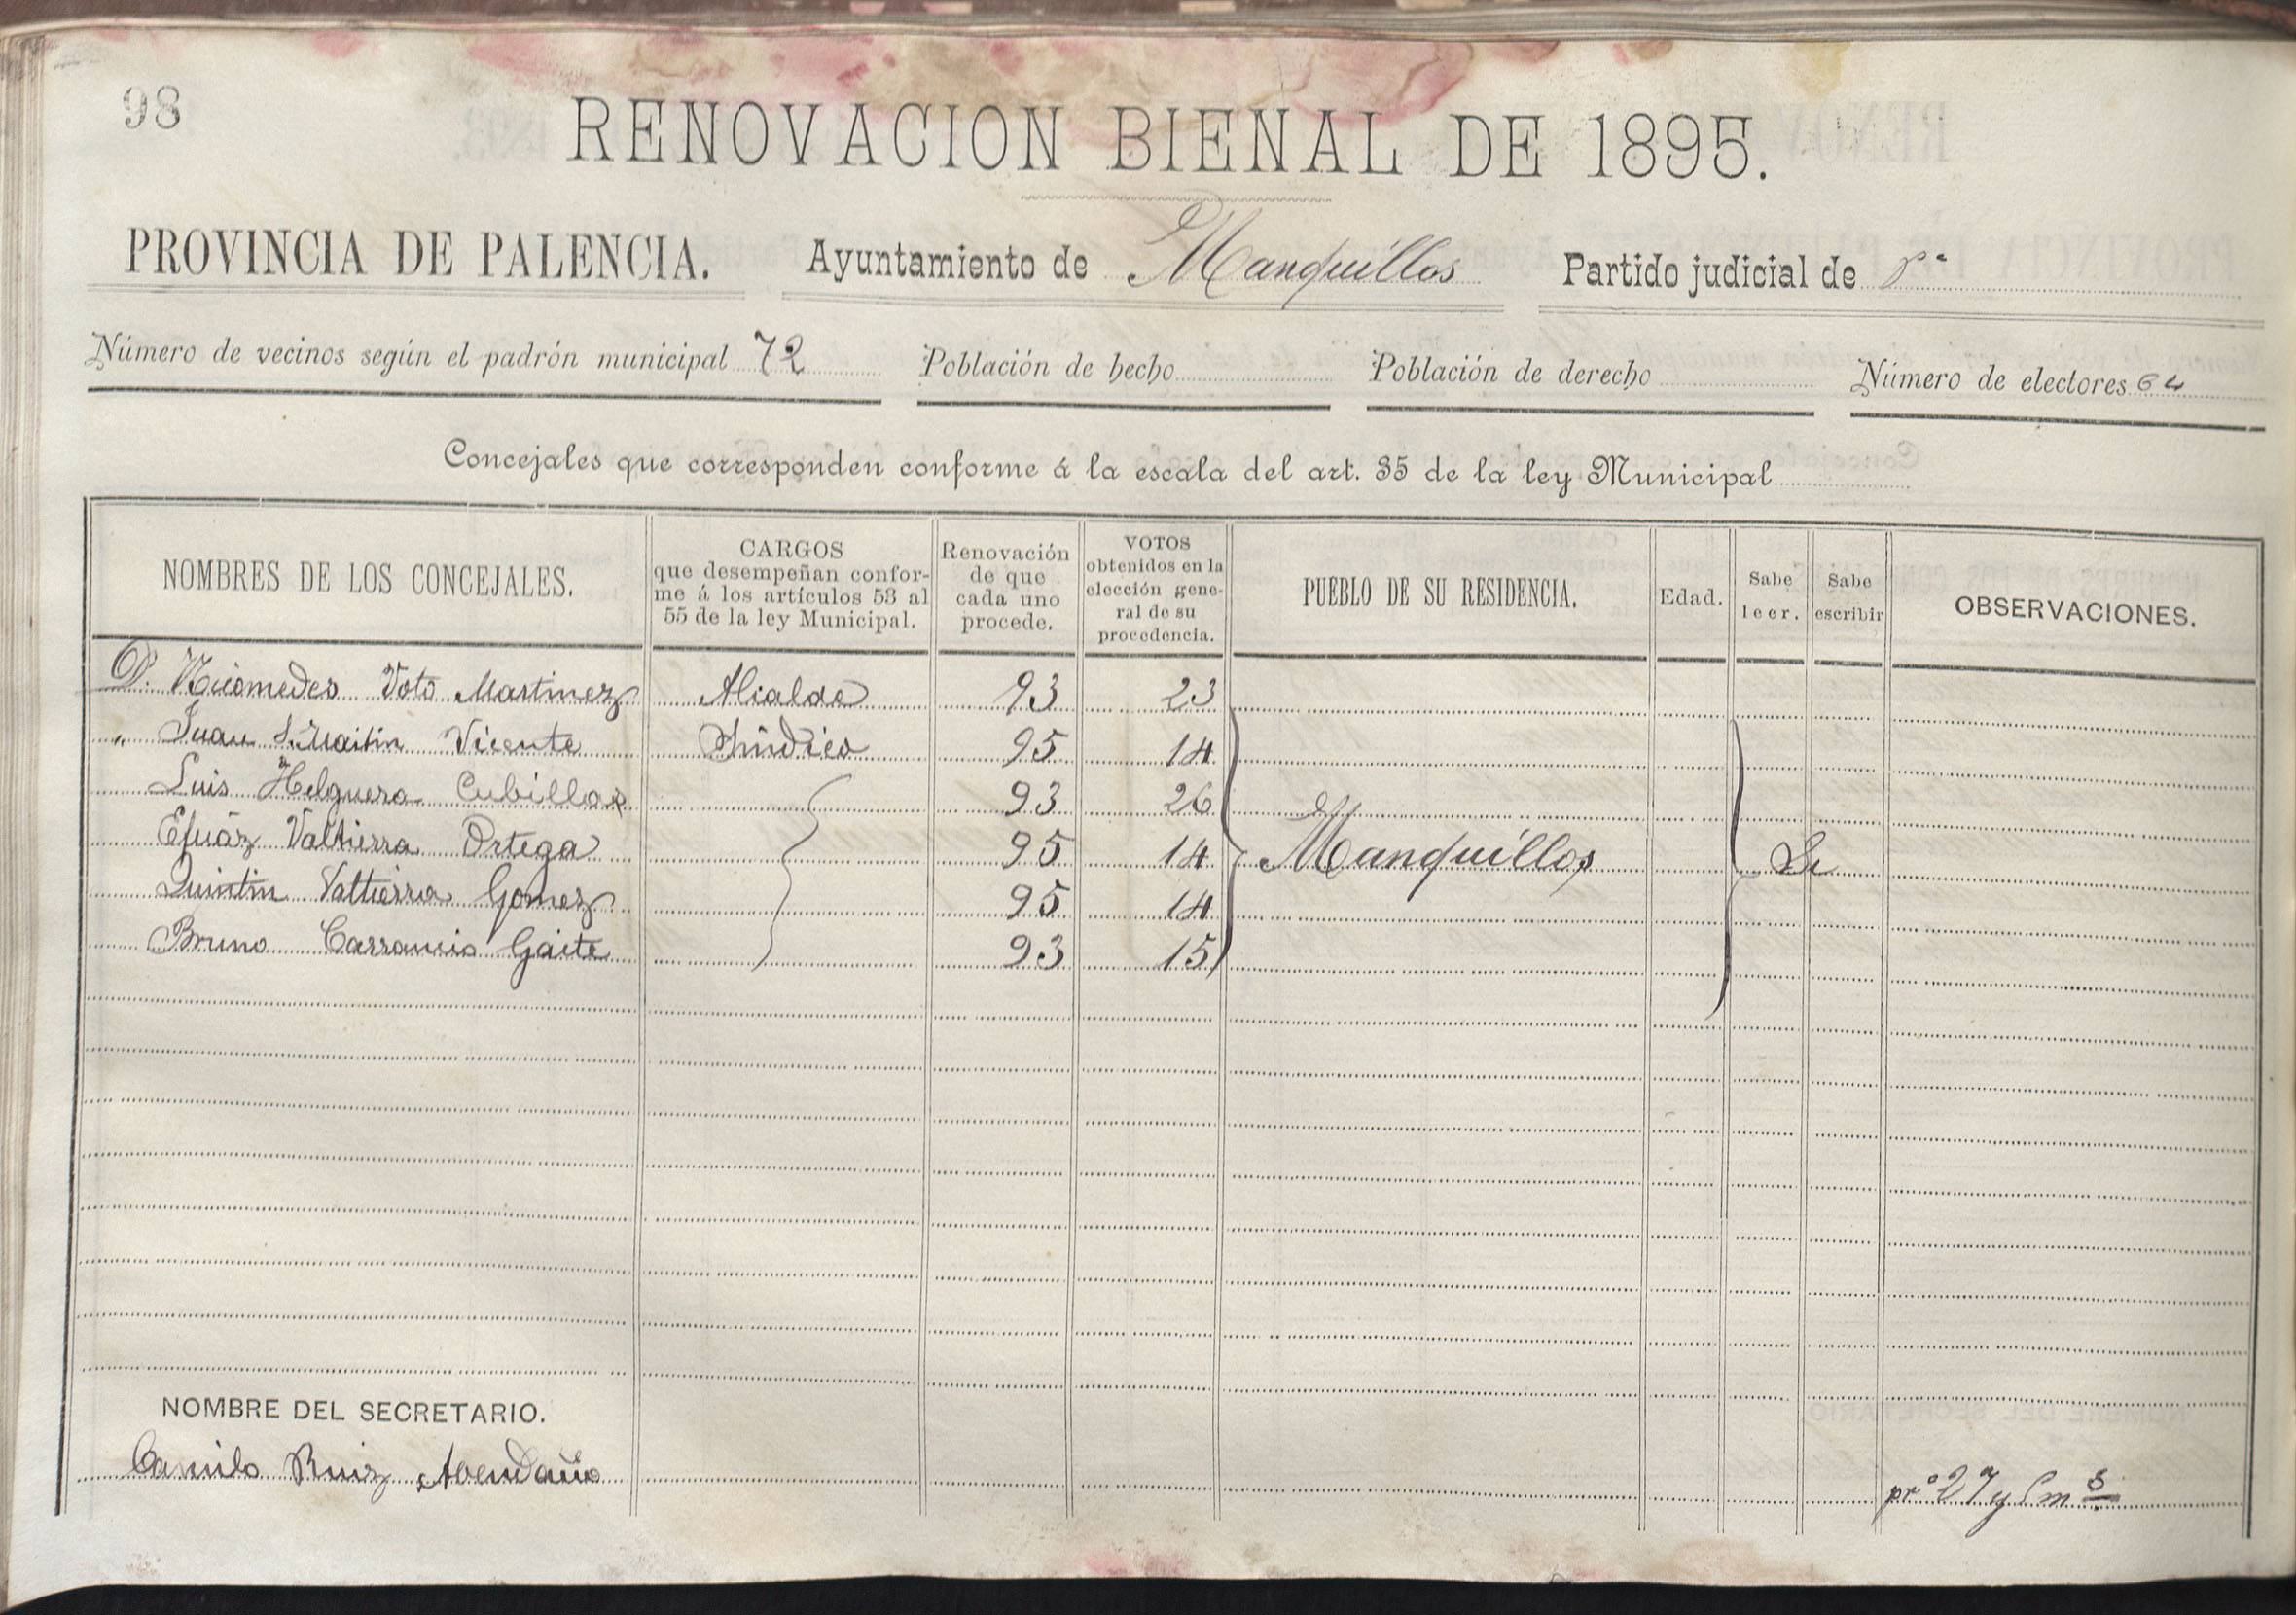 98
RENOVACION BIENAL DE 1895.
PROVINCIA DE PALENCIA. Ayuntamiento de Manquillos Partido judicial de Pª
Número de vecinos según el padrón municipal 72 Población de hecho Población de derecho Número de electores 64
Concejales que corresponden conforme á la escala del art. 35 de la ley Municipal
NOMBRES DE LOS CONCEJALES. CARGOS que desempeñan confor-me á los artículos 53 al 55 de la ley Municipal. Renovación de que cada uno procede. VOTOS obtenidos en la elección gene-ral de su procedencia. PUEBLO DE SU RESIDENCIA. Edad. Sabe leer. Sabe escribir OBSERVACIONES.
D. Nicomedes Martinez Alcalde 93 23
" Juan S. Martin Vicente Síndico 95 14
Luis Helguera Cubillas 93 26
Valtierra Ortega 95 14 Manquillos Si
Quintin Valtierra Gomez 95 14
Bruno Carrancio Gaite 93 15
NOMBRE DEL SECRETARIO.
Camilo Ruiz Abendaño